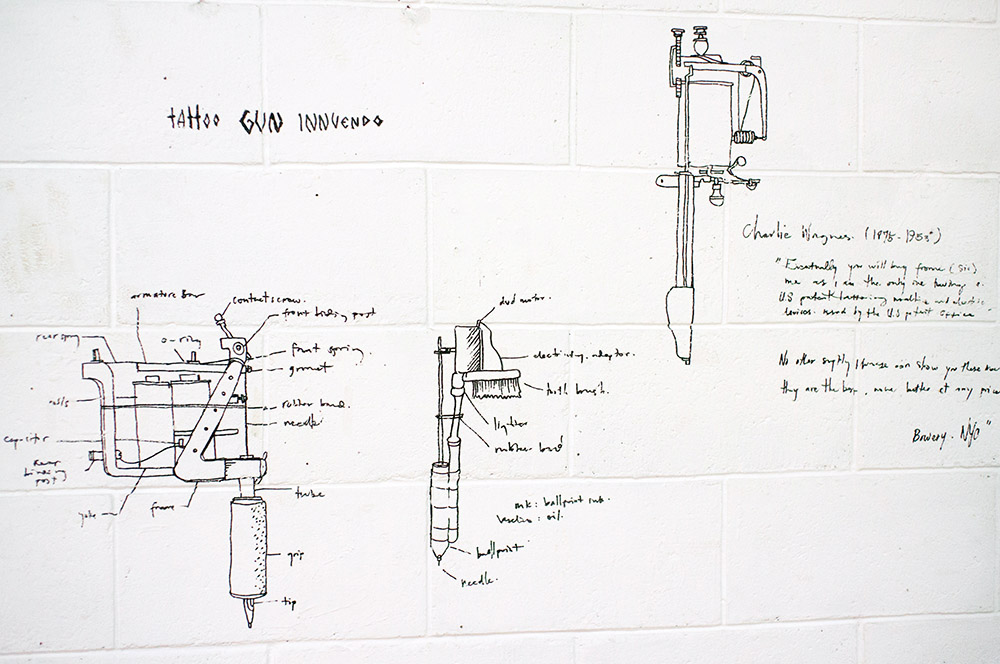 tattoo GUN INNUENDO
armature bar
contact screw.
front binding post
rear spring
o-ring
front spring.
gromet
coils
rubber band.
needle
capacitor
Rear
binding
post
yoke
frame
tube
grip
tip
dvd motor.
electricity adaptor.
tooth brush.
lighter
rubber band
ink: ballpoint ink.
vaseline: oil.
ballpoint
needle.
Charlie Wagner. (1875-1953)
"Eventually you will buy from (sic)
me as I am the only one having a
U.S patent tattooing machine and electric
devices. used by the U.S patent office"
No other supply House can show you these
they are the best, none better at any price
Bowery. NYC"